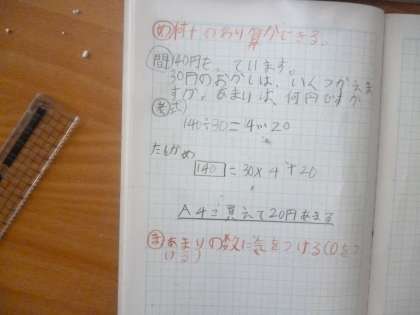 め 何十のわり算ができる。
問 140円もっています。
30円のおかしは、いくつかえま
すか。あまりは、何円ですか
考 式
140÷30=4…20
たしかめ
140=30×4+20
A 4こ買えて20円あまる
ま あまりの数に をつける(0をつ
ける)